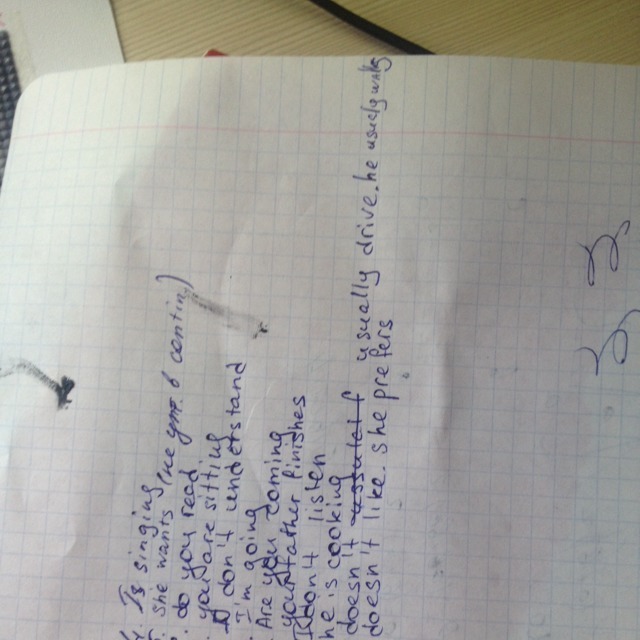 Is singing
she wants
do you read
you are sitting
I don't understand
I'm going
Are you coming
your father finishes
I don't listen
he is cooking
doesn't usually drive. he usually walks
doesn't like. she prefers